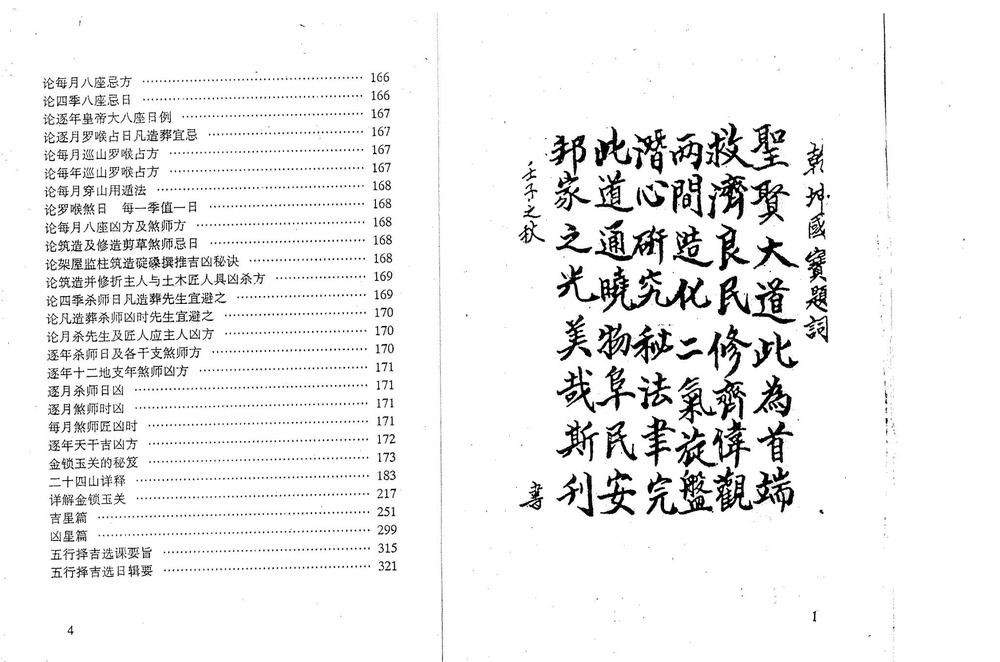 论每月八座忌方 …………………………… 166
论四季八座忌日 …………………………… 166
论逐年皇帝大八座日例 …………………………… 167
论逐月罗喉占日凡造葬宜忌 …………………………… 167
论每月巡山罗喉占方 …………………………… 167
论每年巡山罗喉占方 …………………………… 167
论每月穿山用遁法 …………………………… 168
论罗喉煞日 每一季值一日 …………………………… 168
论每月八座凶方及煞师方 …………………………… 168
论筑造及修造剪草煞师忌日 …………………………… 168
论架屋监柱筑造碇磉撰推吉凶秘诀 …………………………… 168
论筑造并修折主人与土木匠人具凶杀方 …………………………… 169
论四季杀师日凡造葬先生宜避之 …………………………… 169
论凡造葬杀师凶时先生宜避之 …………………………… 170
论月杀先生及匠人应主人凶方 …………………………… 170
逐年杀师日及各干支煞师方 …………………………… 170
逐年十二地支年煞师凶方 …………………………… 171
逐月杀师日凶 …………………………… 171
逐月煞师时凶 …………………………… 171
每月煞师匠凶时 …………………………… 171
逐年天干吉凶方 …………………………… 172
金锁玉关的秘笈 …………………………… 173
二十四山详释 …………………………… 183
详解金锁玉关 …………………………… 217
吉星篇 …………………………… 251
凶星篇 …………………………… 299
五行择吉选课要旨 …………………………… 315
五行择吉选日辑要 …………………………… 321
4
乾坤國寶題詞
聖賢大道此為首端
救濟良民修齊偉觀
两間造化二氣旋盤
潛心研究秘法聿完
此道通曉物阜民安
邦家之光美哉斯刊
壬子之秋
書
1